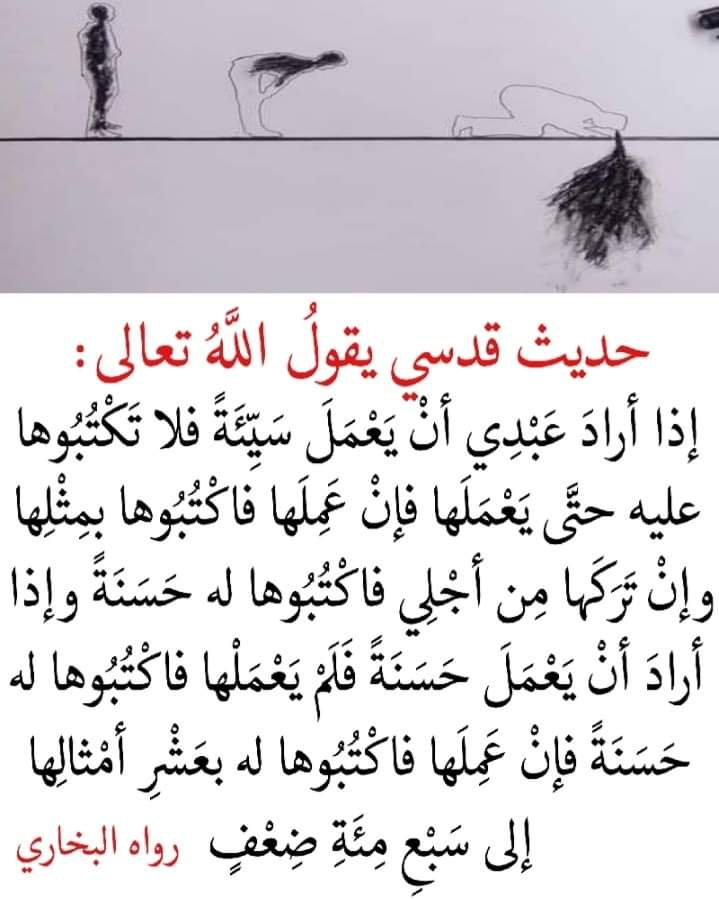 حديث قدسي يقولُ اللَّهُ تعالى :
إذا أرادَ عَبْدِي أنْ يَعْمَلَ سَيِّئَةً فلا تَكْتُبُوها
عليه حتَّى يَعْمَلَها فإنْ عَمِلَها فاكْتُبُوها بمِثْلِها
وإنْ تَرَكَها مِن أجْلِي فاكْتُبُوها له حَسَنَةً وإذا
أرادَ أنْ يَعْمَلَ حَسَنَةً فَلَمْ يَعْمَلْها فاكْتُبُوها له
حَسَنَةً فإنْ عَمِلَها فاكْتُبُوها له بعَشْرِ أمْثالِها
إلى سَبْعِ مِئَةِ ضِعْفٍ رواه البخاري